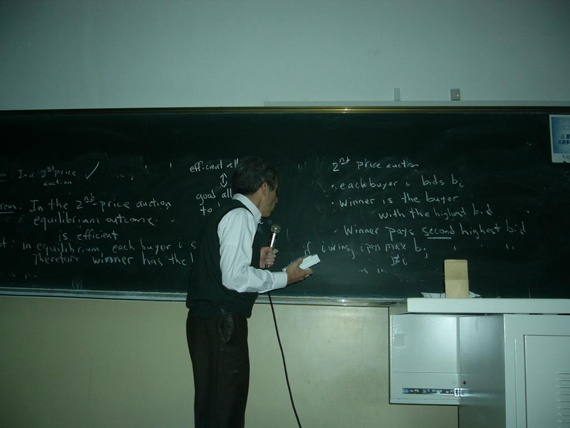 In a 2nd price
auction
In the 2nd price auction
equilibrium outcome
is efficient
in equilibrium each buyer is
Therefore winner has the
efficient all
good all
to
2nd Price auction
· each buyer i bids bi
· Winner is the buyer
with the highest bid
· Winner pays second highest bid
if i wins, i pay max bj
j≠i